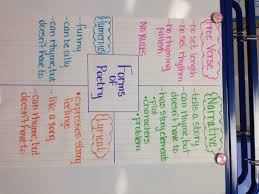 Free Verse
-no set length
-no set rhythm
-no rhyming
pattern
NO RULES
Narrative
-tells a story
-can rhyme, but
doesn't have to
-has story elements
•plot
•characters
•problem
Forms
of
Poetry
Humorous
-funny
-can be silly
-can rhyme, but
doesn't have to
Lyrical
•expresses strong
feelings
-like a song
-can rhyme, but
doesn't have to